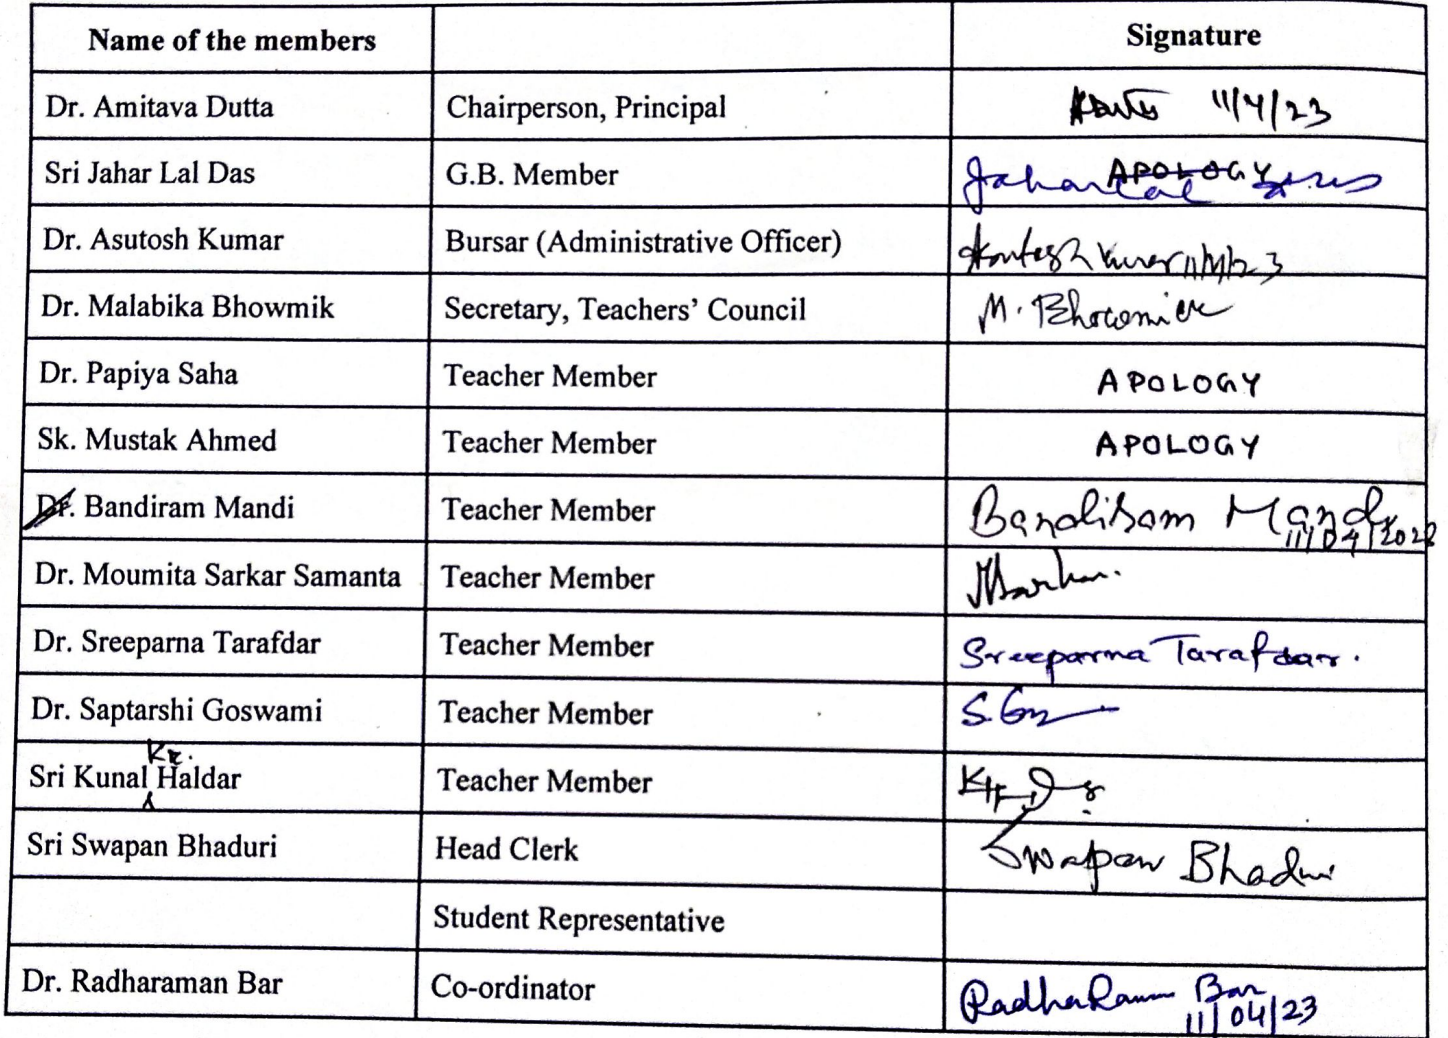 Name of the members Signature
Dr. Amitava Dutta Chairperson, Principal 11/4/23
Sri Jahar Lal Das G.B. Member APOLOGY Jahar Lal Das
Dr. Asutosh Kumar Bursar (Administrative Officer) Asutosh Kumar 11/4/23
Dr. Malabika Bhowmik Secretary, Teachers’ Council M. Bhowmik
Dr. Papiya Saha Teacher Member APOLOGY
Sk. Mustak Ahmed Teacher Member APOLOGY
Dr. Bandiram Mandi Teacher Member Bandiram Mandi
11/04/2023
Dr. Moumita Sarkar Samanta Teacher Member MSarkar.
Dr. Sreeparna Tarafdar Teacher Member Sreeparna Tarafdar.
Dr. Saptarshi Goswami Teacher Member
Sri Kunal Kr. Haldar Teacher Member
Sri Swapan Bhaduri Head Clerk Swapan Bhaduri
Student Representative
Dr. Radharaman Bar Co-ordinator Radharaman Bar
11/04/23